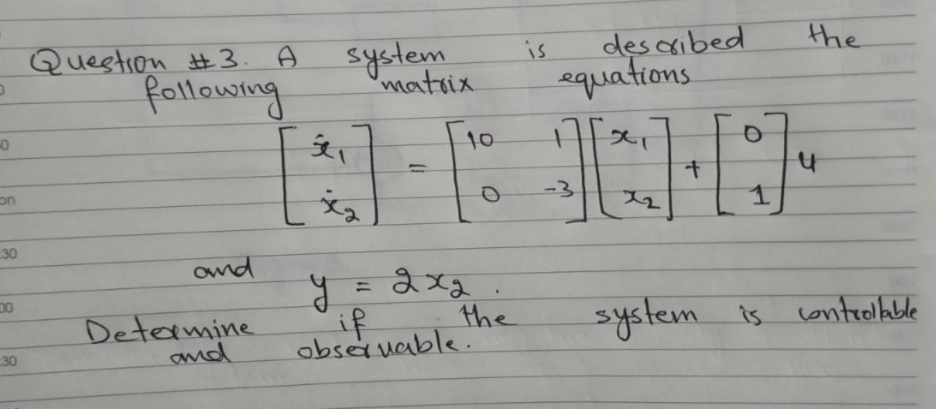 Question #3. A system is described the
following matrix equations
[ẋ1 ẋ2] = [10 1 0 -3] [x1 x2] + [0 1] u
and
y = 2x2.
Determine if the system is controllable
and observable.